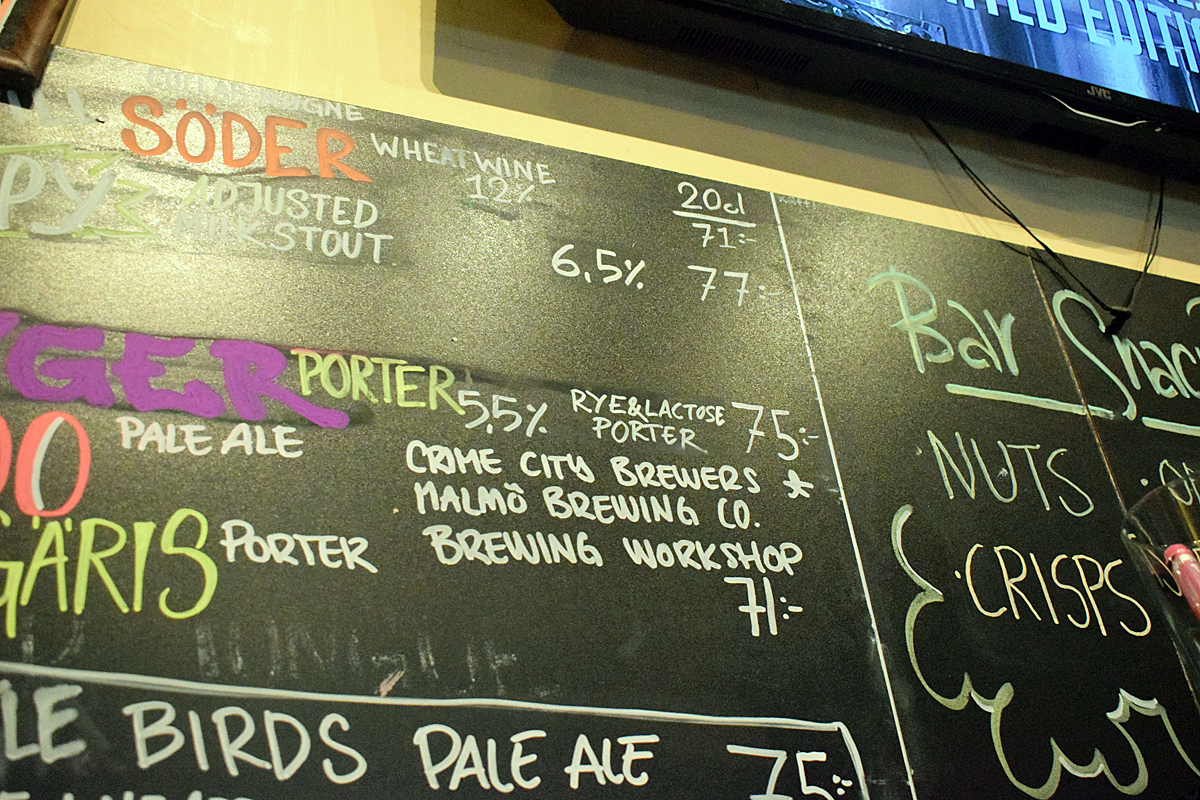 EDITI
JVC
NØGNE
SÖDER WHEATWINE
12% 20cl
71:-
PY ADJUSTED
MILKSTOUT
6,5% 77:-
GER PORTER 5,5% RYE&LACTOSE
PORTER 75:-
PALE ALE CRIME CITY BREWERS *
MALMÖ BREWING CO.
GÄRIS PORTER BREWING WORKSHOP
71:-
LE BIRDS PALE ALE 75:-
Bar Snac
· NUTS
· CRISPS